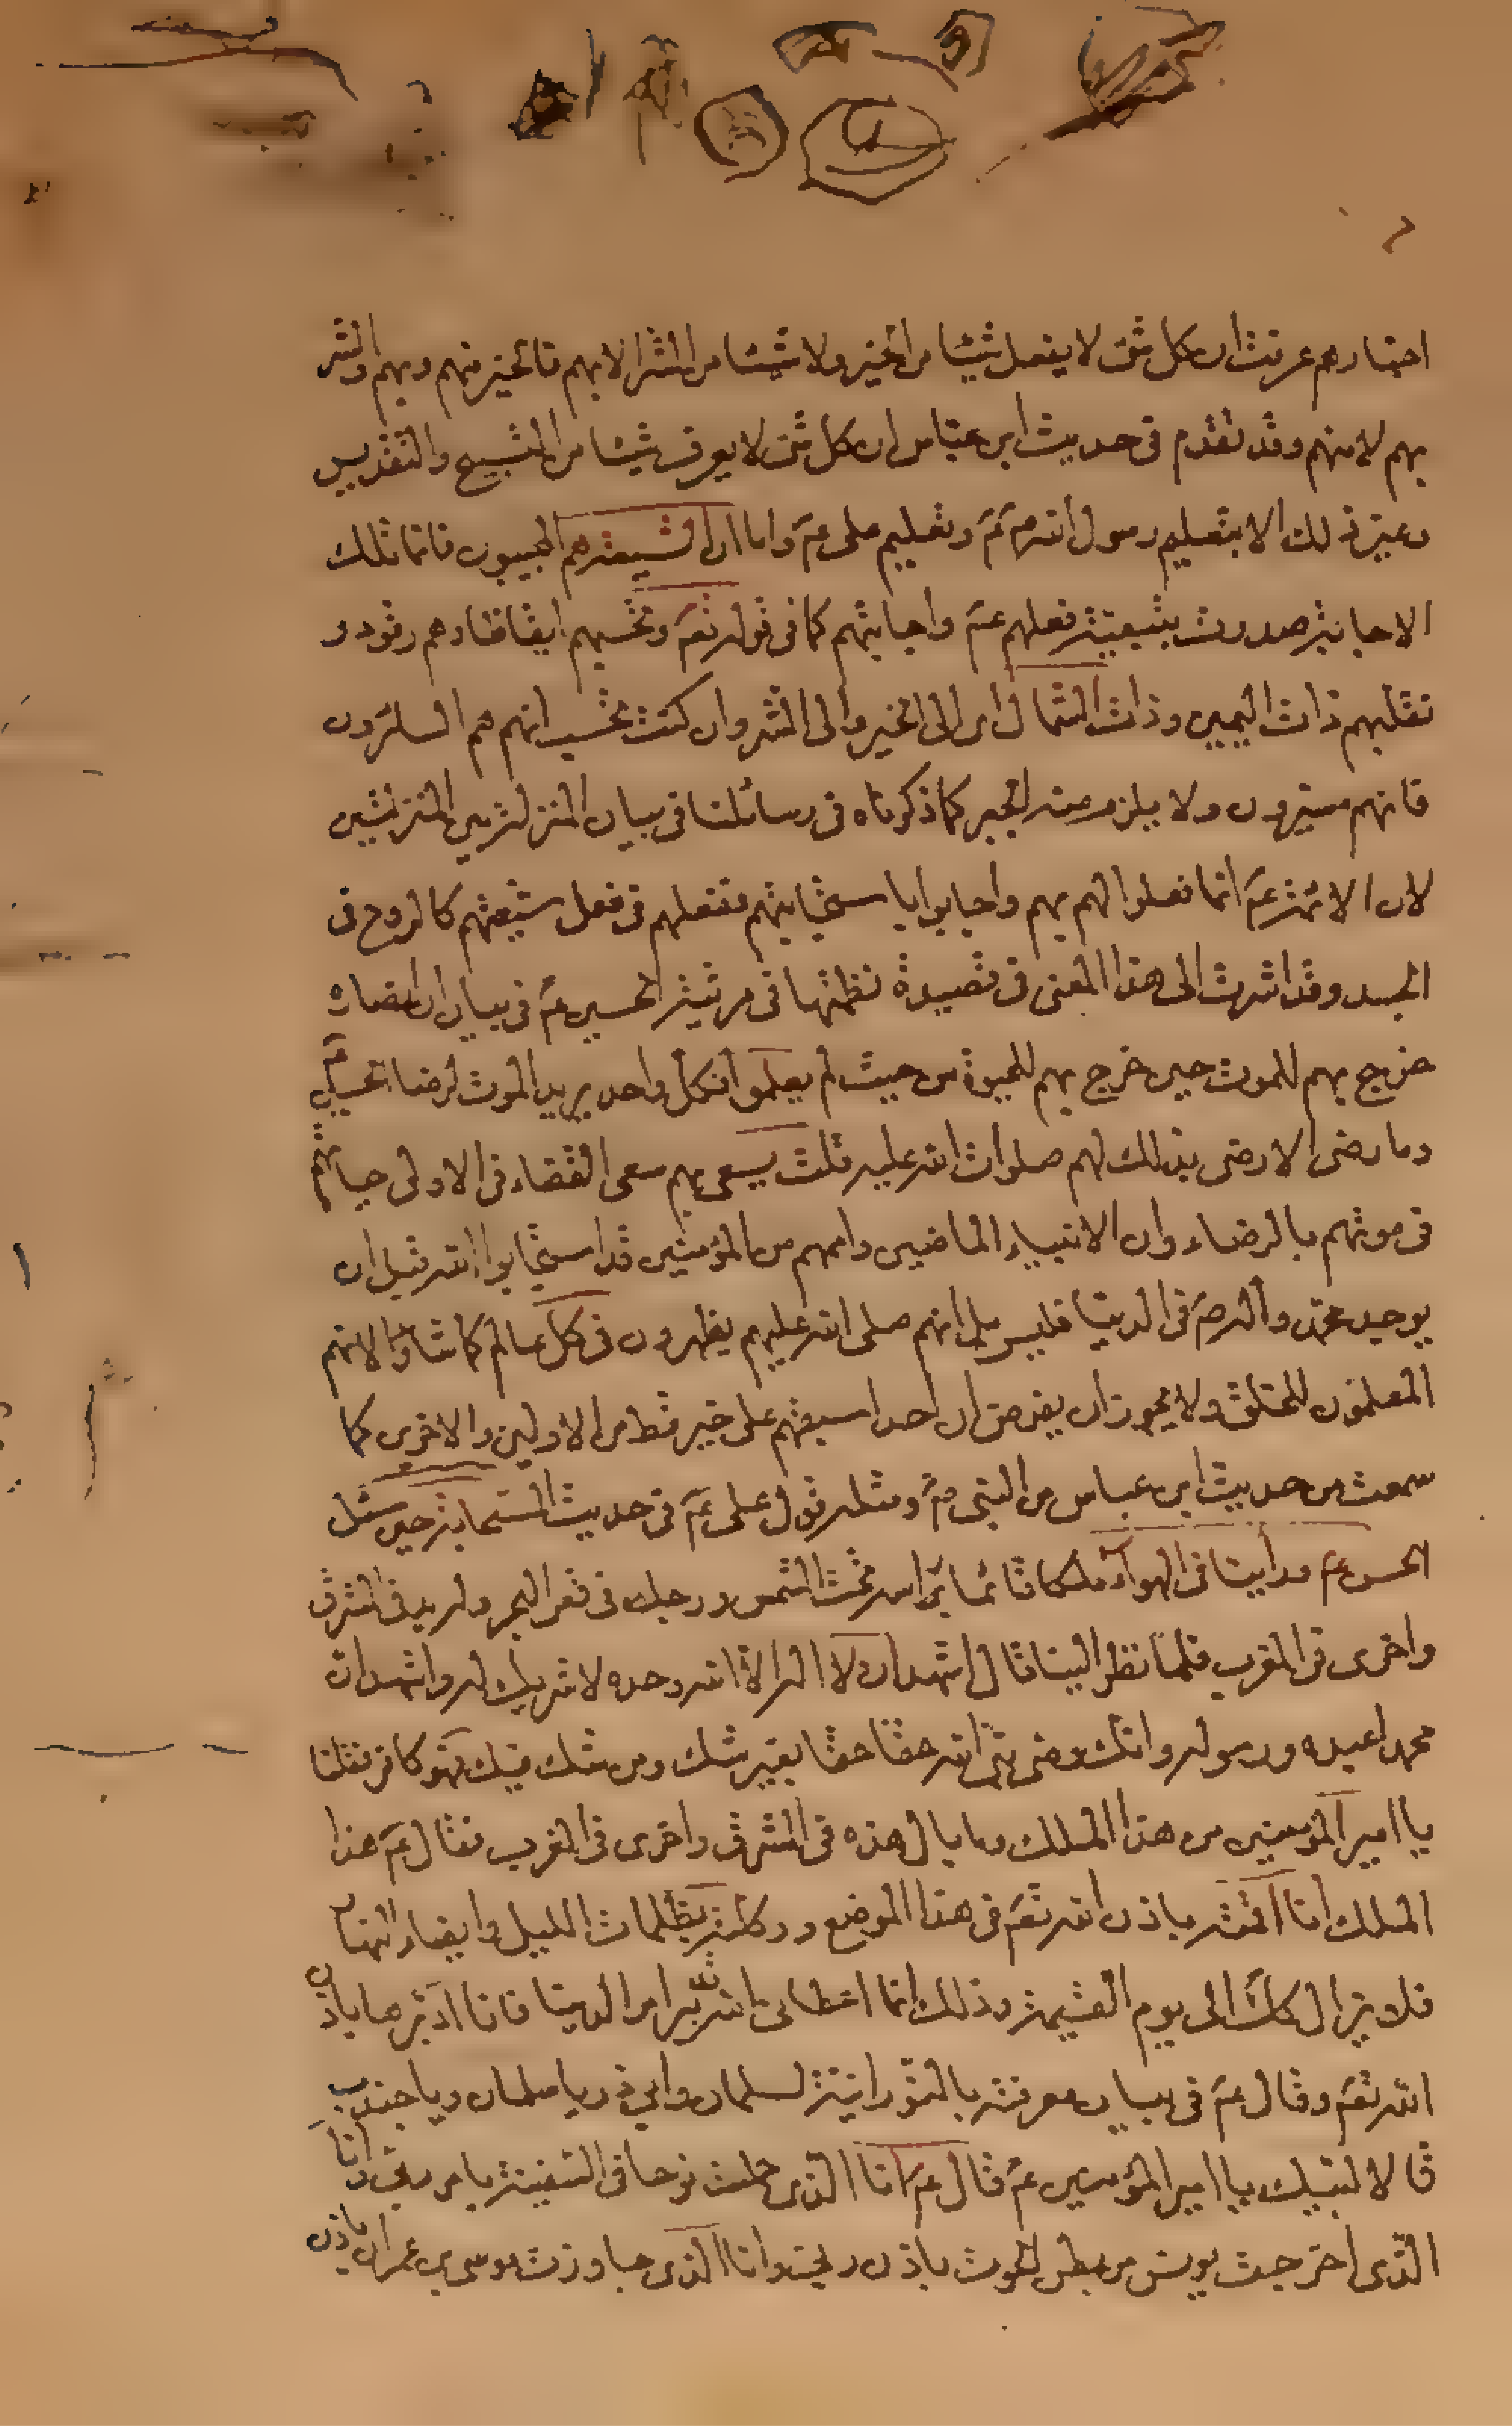 اخبارهم عرفت ان كل شئ لا يفعل شيئا من الخير ولا شيئا من الشر الا بهم فالخير منهم وبهم والشر
بهم لا منهم وقد تقدم فى حديث ابن عباس ان كل شئ لا يعرف شيئا من التسبيح والتقديس
وغير ذلك الا بتعليم رسول الله صم وتعليم على عم واما ان الشيعة هم المجيبون فانما تلك
الاجابة صدرت بتبعيته فعلهم عم واجابتهم كما فى قوله تعم وتحسبهم ايقاظا وهم رقود و
نقلبهم ذات اليمين وذات الشمال اى الى الخير والى الشر وان كنت تحسب انهم هم السائرون
فانهم مسيرون ولا يلزم منه الجبر كما ذكرناه فى رسائلنا فى بيان المنزلة بين المنزلتين
لان الائمة عم انما فعلوا لهم بهم واجابوا باستجابتهم ففعلهم فى فعل شيعتهم كالروح فى
الجسد وقد اشرت الى هذا المعنى فى قصيدة نظمتها فى مرثية الحسين عم فى بيان ان انصاره
خرج بهم للموت حين خرج بهم للحيوة من حيث لم يعلموا فكل واحد يريد الموت لرضا الحسين عم
وما رضى الا رضى بذلك لهم صلوات الله عليه قلت يسعى بهم سعى القضاء فى الاولى حياتهم
فى موتهم بالرضاء وان الانبياء الماضين واممهم من المؤمنين قد استجابوا لله قبل ان
يوجد محمد وآله صم فى الدنيا فليس الا انهم صلى الله عليهم يظهرون فى كل عالم كما شاؤا لانهم
المعلمون للخلق ولا يجوز ان يفرض ان احدا سبقهم على خير قط من الاولين والاخرين كما
سمعت من حديث ابن عباس من النبى صم ومثله قول على عم فى حديث السحابة حين سئل
الحسن عم ورأينا فى الهواء ملكا قائما رأسه تحت الشمس ورجله فى قعر البحر وله يد فى المشرق
واخرى فى المغرب فلما نظر الينا قال اشهد ان لا اله الا الله وحده لا شريك له واشهد ان
محمدا عبده ورسوله وانك وصى نبى الله حقا حقا بغير شك ومن شك فيك فهو كافر فقلنا
يا امير المؤمنين من هذا الملك وما بال هذه فى المشرق واخرى فى المغرب فقال عم هذا
الملك انا اقمته باذن الله تعم فى هذا الموضع ووكلته بظلمات الليل وانهار
فلا يزال كك الى يوم القيمة وذلك انما اعطانى الله تدبير امر الدنيا فانا ادبرها باذن
الله تعم وقال عم فى بيان معرفته بالنورانية لسلمان وابى ذر يا سلمان ويا جندب
قالا لبيك يا امير المؤمنين عم قال عم انا الذى حملت نوحا فى السفينة بامر ربى وانا
الذى اخرجت يونس من بطن الحوت باذن ربى وانا الذى جاوزت موسى بن عمران باذن